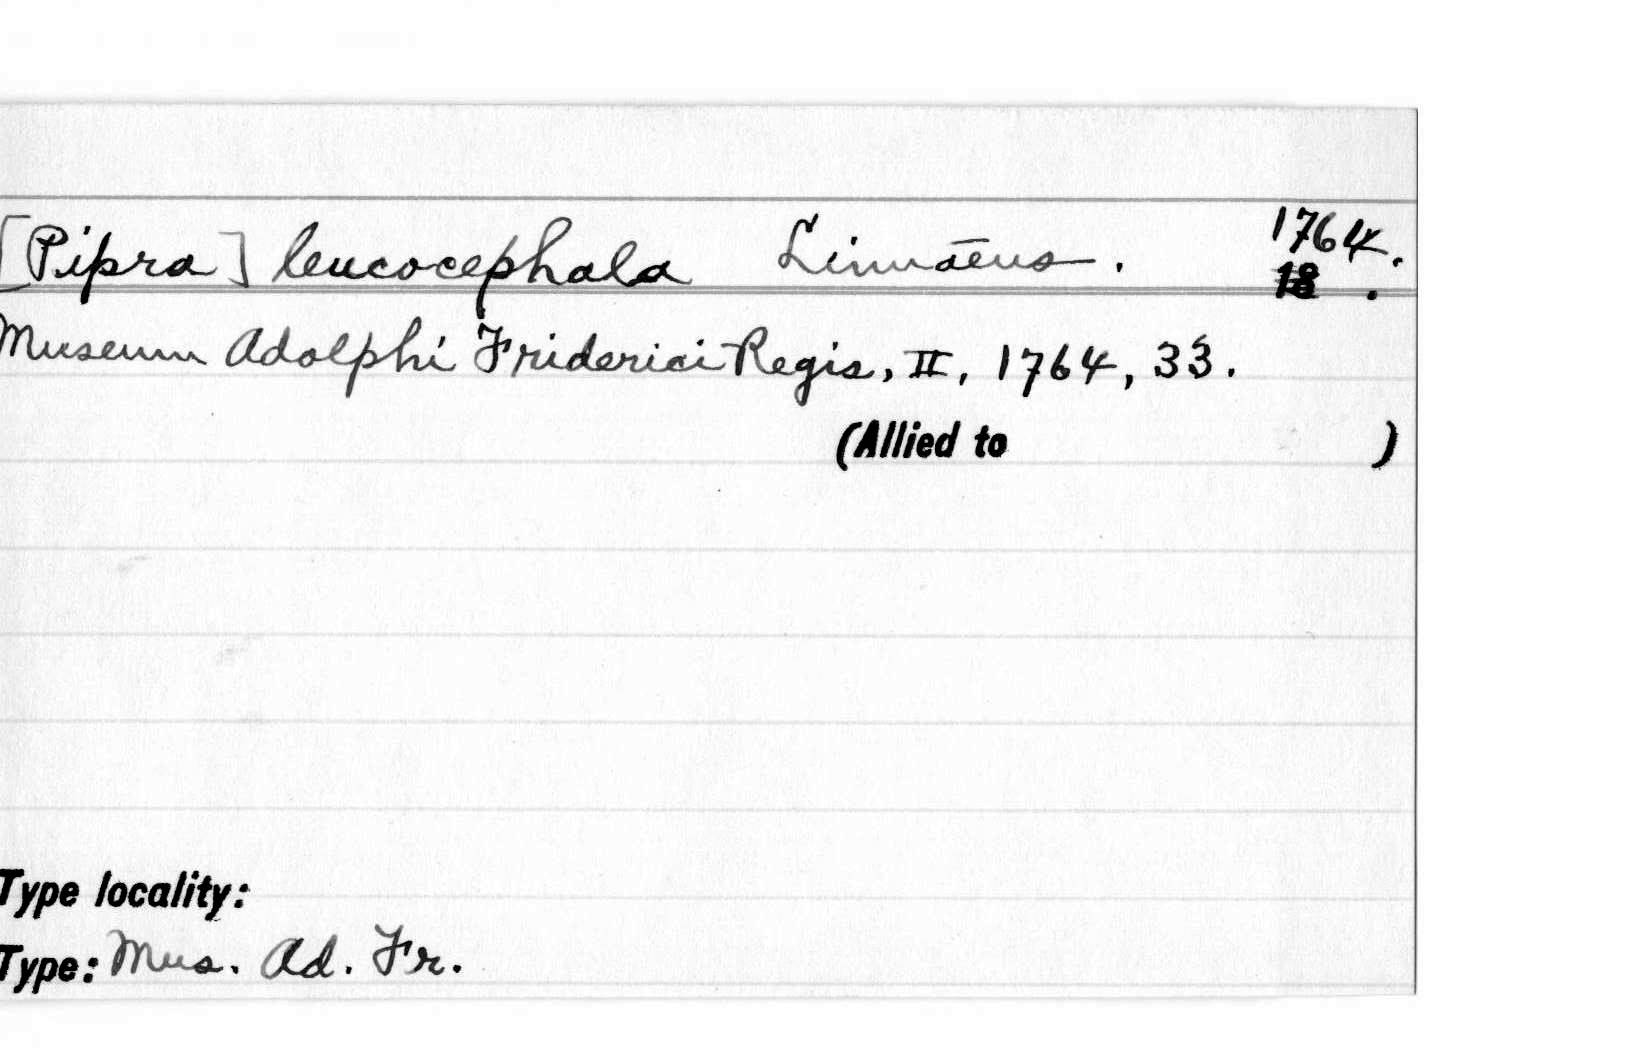 [Pipra] leucocephala Linnaeus. 1764.
18 .
Museum Adolphi Friderici Regis, II, 1764, 33.
(Allied to )
Type locality:
Type: Mus. Ad. Fr.